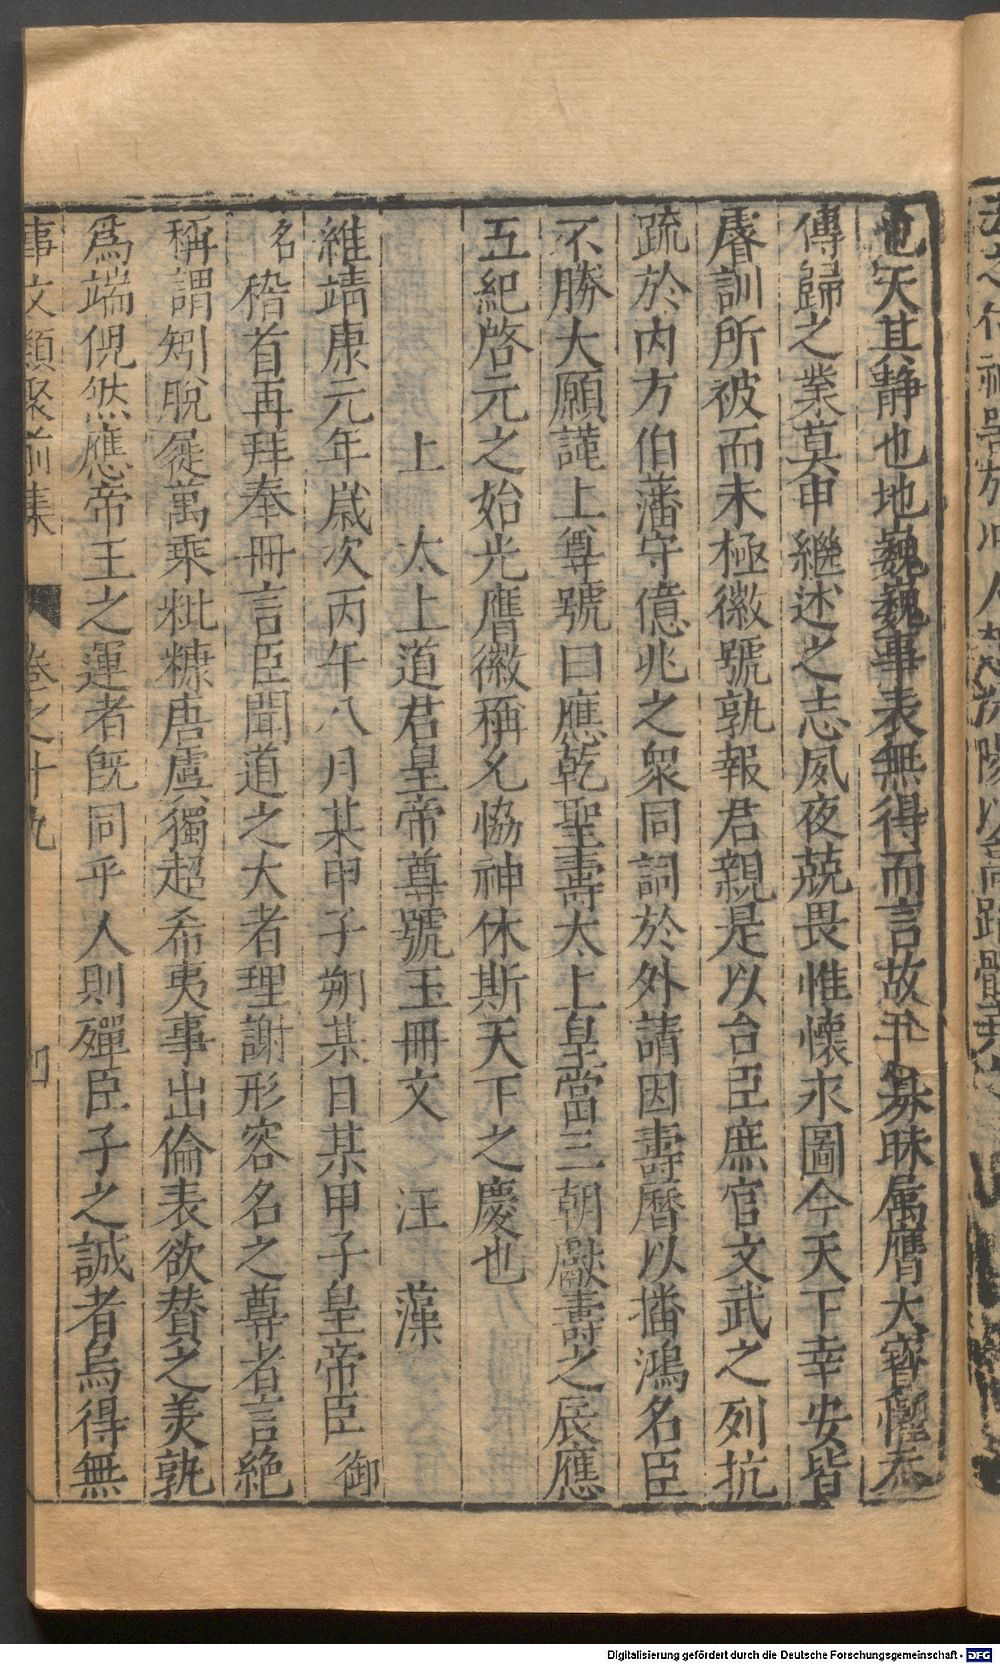 也天其靜也地巍巍事表無得而言故千臣昧属膺大寳懼忝
傳歸之業莫申繼述之志夙夜兢畏惟懷永圖今天下幸安皆
睿訓所被而未極徽號孰報君親是以台臣庶官文武之列抗
疏於内方伯藩守億兆之衆同詞於外請因壽曆以播鴻名臣
不勝大願謹上尊號曰應乾聖壽太上皇當三朝獻壽之辰應
五紀啓元之始光膺徽稱允恊神休斯天下之慶也
上 太上道君皇帝尊號玉冊文 汪 藻
維靖康元年歲次丙午八月某甲子朔某日某甲子皇帝臣 御
名 稽首再拜奉冊言臣聞道之大者理謝形容名之尊者言絶
稱謂矧脫屣萬乘粃糠唐虞獨超希夷事出倫表欲賛之美孰
爲端倪然應帝王之運者旣同乎人則殫臣子之誠者烏得無
事文類聚前集 卷之十九 四
Digitalisierung gefördert durch die Deutsche Forschungsgemeinschaft - DFG